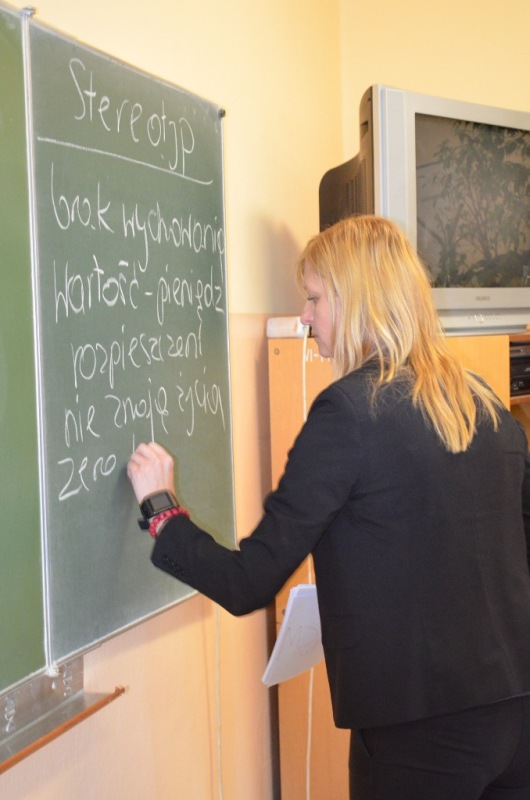 Stereotyp
brak wychowania
Wartość - pieniądz
rozpieszczeni
nie znają życia
zero